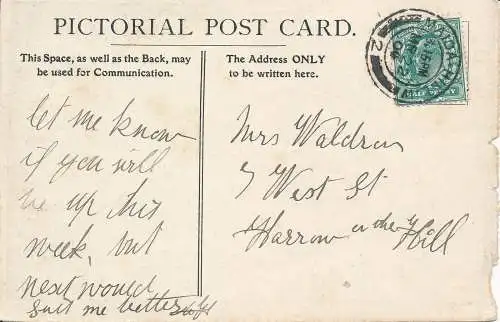 PICTORIAL POST CARD.
This Space, as well as the Back, may
be used for Communication.
The Address ONLY
to be written here.
let me know
if you will
be up this
week, but
next would
suit me better
Mrs Waldron
7 West St
Harrow on the Hill
MAIDA HILL
5.15PM
2
HALF PENNY